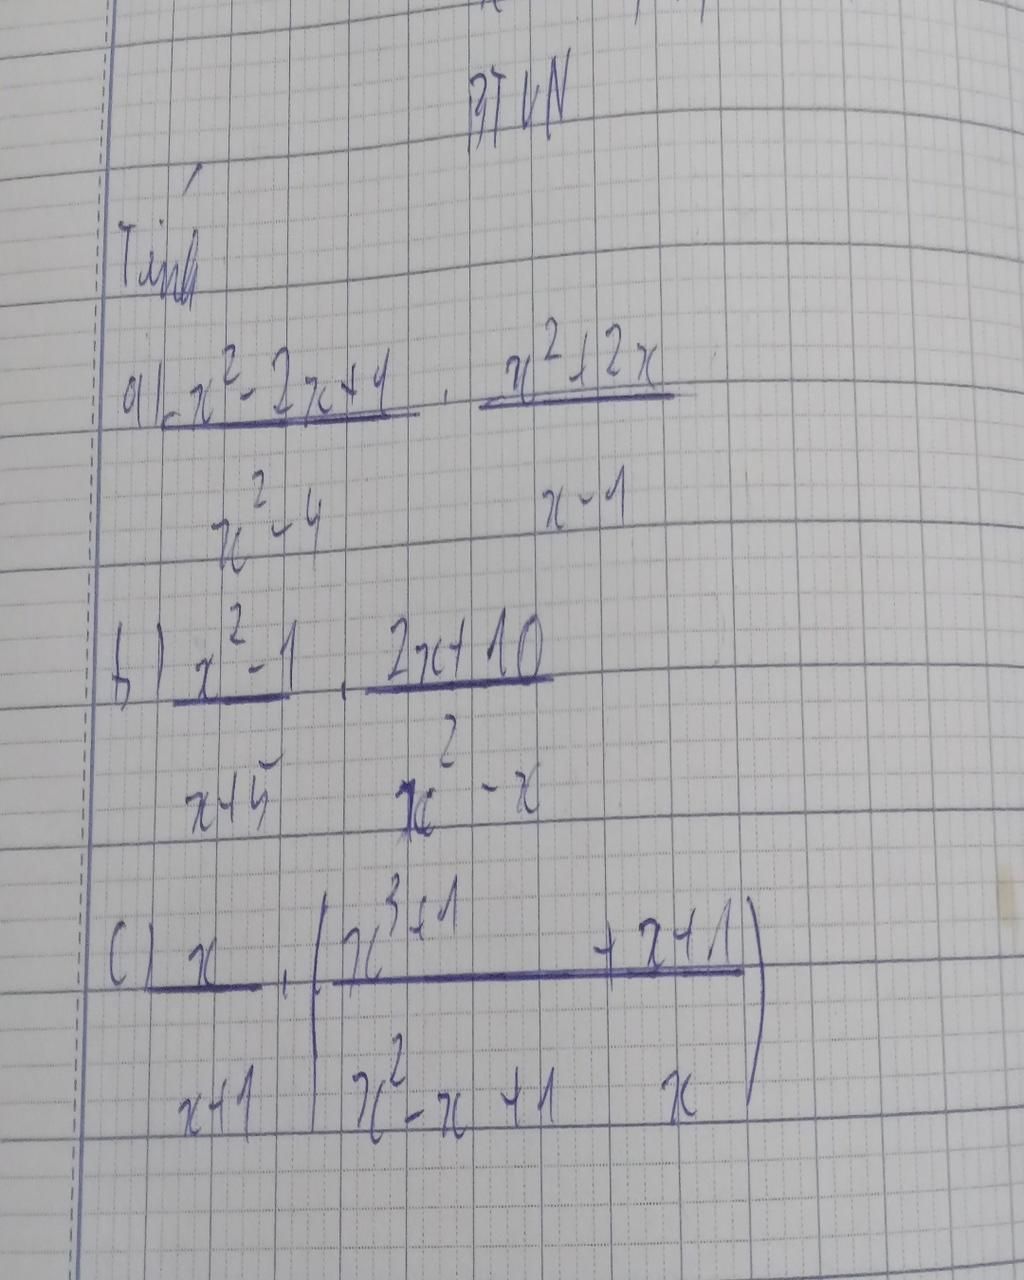 BTVN
Tính
a) x² - 2x + 1 / x² - 4 . x² + 2x / x - 1
b) x² - 1 / x + 5 . 2x + 10 / x² - x
c) x / x + 1 . ( x³ + 1 / x² - x + 1 + x + 1 / x )